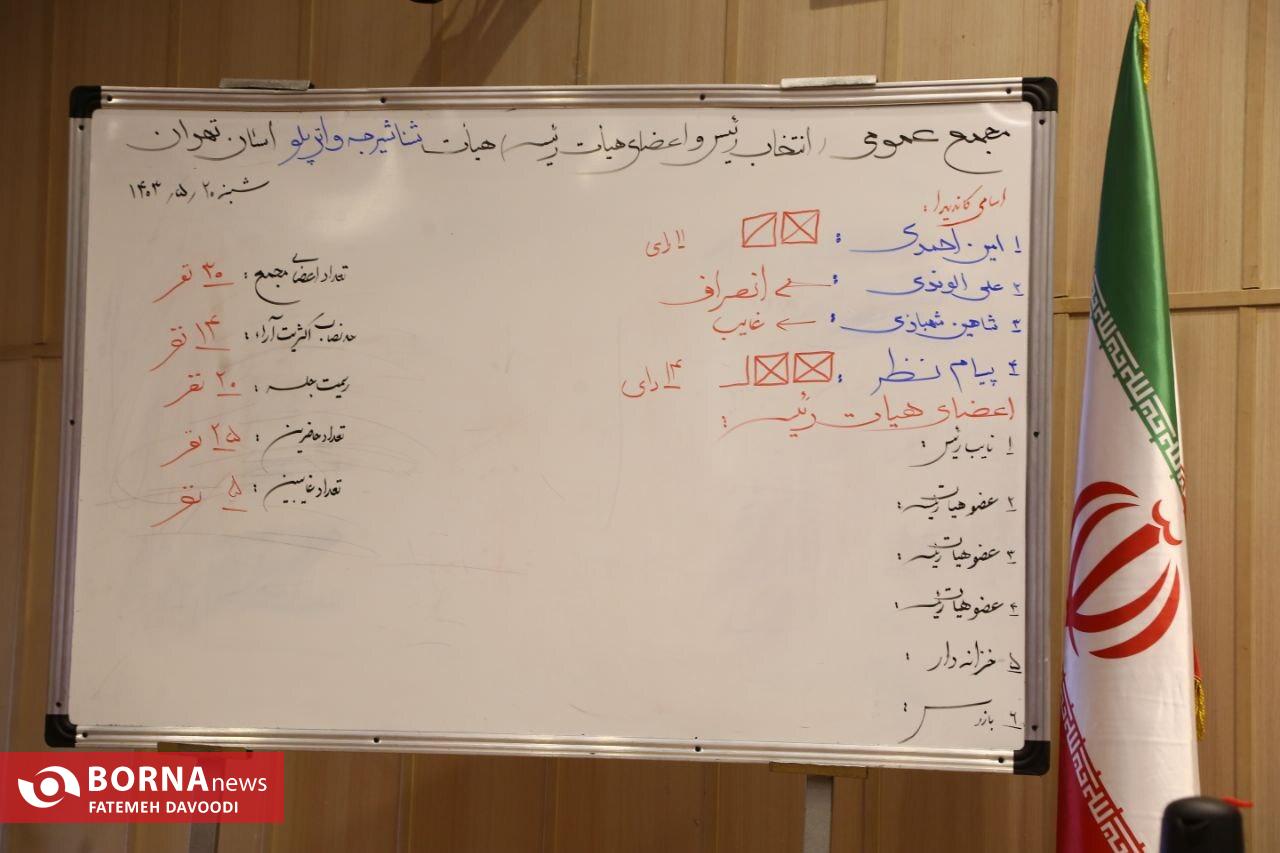 مجمع عمومی (انتخاب رئیس و اعضای هیأت رئیسه) هیأت شنا شیرجه و واترپلو استان تهران
شنبه ۱۴۰۳/۵/۲۰
اسامی کاندیدا:
۱ امین احمدی : ۱۱ رای
۲ علی الوندی : ← انصراف
۳ شاهین شهبازی : ← غایب
۴ پیام نظر : ۱۴ رای
اعضای هیات رئیسه :
۱ نایب رئیس :
۲ عضو هیات رئیسه :
۳ عضو هیات رئیسه :
۴ عضو هیات رئیسه :
۵ خزانه دار :
۶ بازرس :
تعداد اعضای مجمع : ۳۰ نفر
حدنصاب اکثریت آراء : ۱۴ نفر
رسمیت جلسه : ۲۰ نفر
تعداد حاضرین : ۲۵ نفر
تعداد غایبین : ۵ نفر
BORNA news
FATEMEH DAVOODI